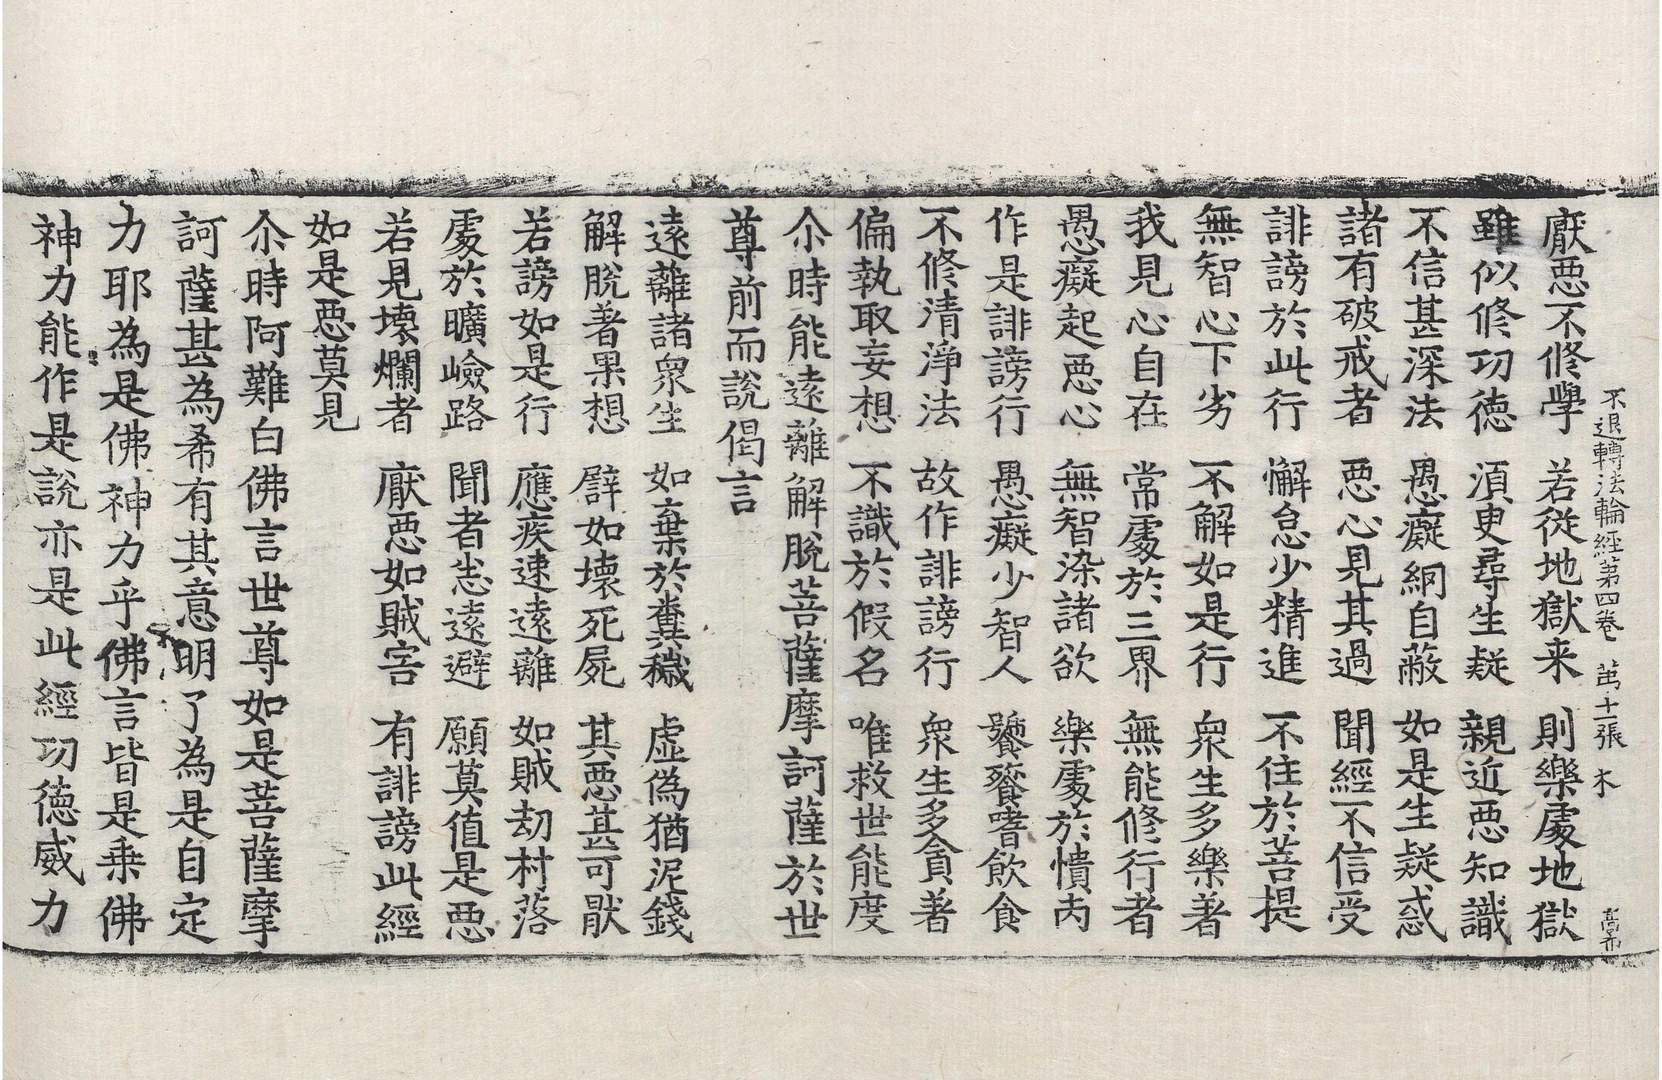 不退轉法輪經第四卷 苐十一張 木 高希
厭惡不修學 若從地獄来 則樂處地獄
雖似修功德 湏㬰尋生疑 親近惡知識
不信甚深法 愚癡網自蔽 如是生疑惑
諸有破戒者 惡心見其過 聞經不信受
誹謗於此行 懈怠少精進 不住於菩提
無智心下劣 不解如是行 衆生多樂著
我見心自在 常處於三界 無能修行者
愚癡起惡心 無智染諸欲 樂處於憒丙
作是誹謗行 愚癡少智人 饕餮嗜飲食
不修清淨法 故作誹謗行 衆生多貪著
偏執取妄想 不識於假名 唯救世能度
尒時能遠離解脫菩薩摩訶薩於世
尊前而說偈言
遠離諸衆生 如棄於糞穢 虛偽猶泥錢
解脫著果想 譬如壞死屍 其惡甚可猒
若謗如是行 應疾速遠離 如賊劫村落
處於曠嶮路 聞者悉遠避 願莫值是惡
若見壞爛者 厭惡如賊害 有誹謗此經
如是惡莫見
尒時阿難白佛言世尊如是菩薩摩
訶薩甚為希有其意明了為是自定
力耶為是佛神力乎佛言皆是乘佛
神力能作是說亦是此經功德威力